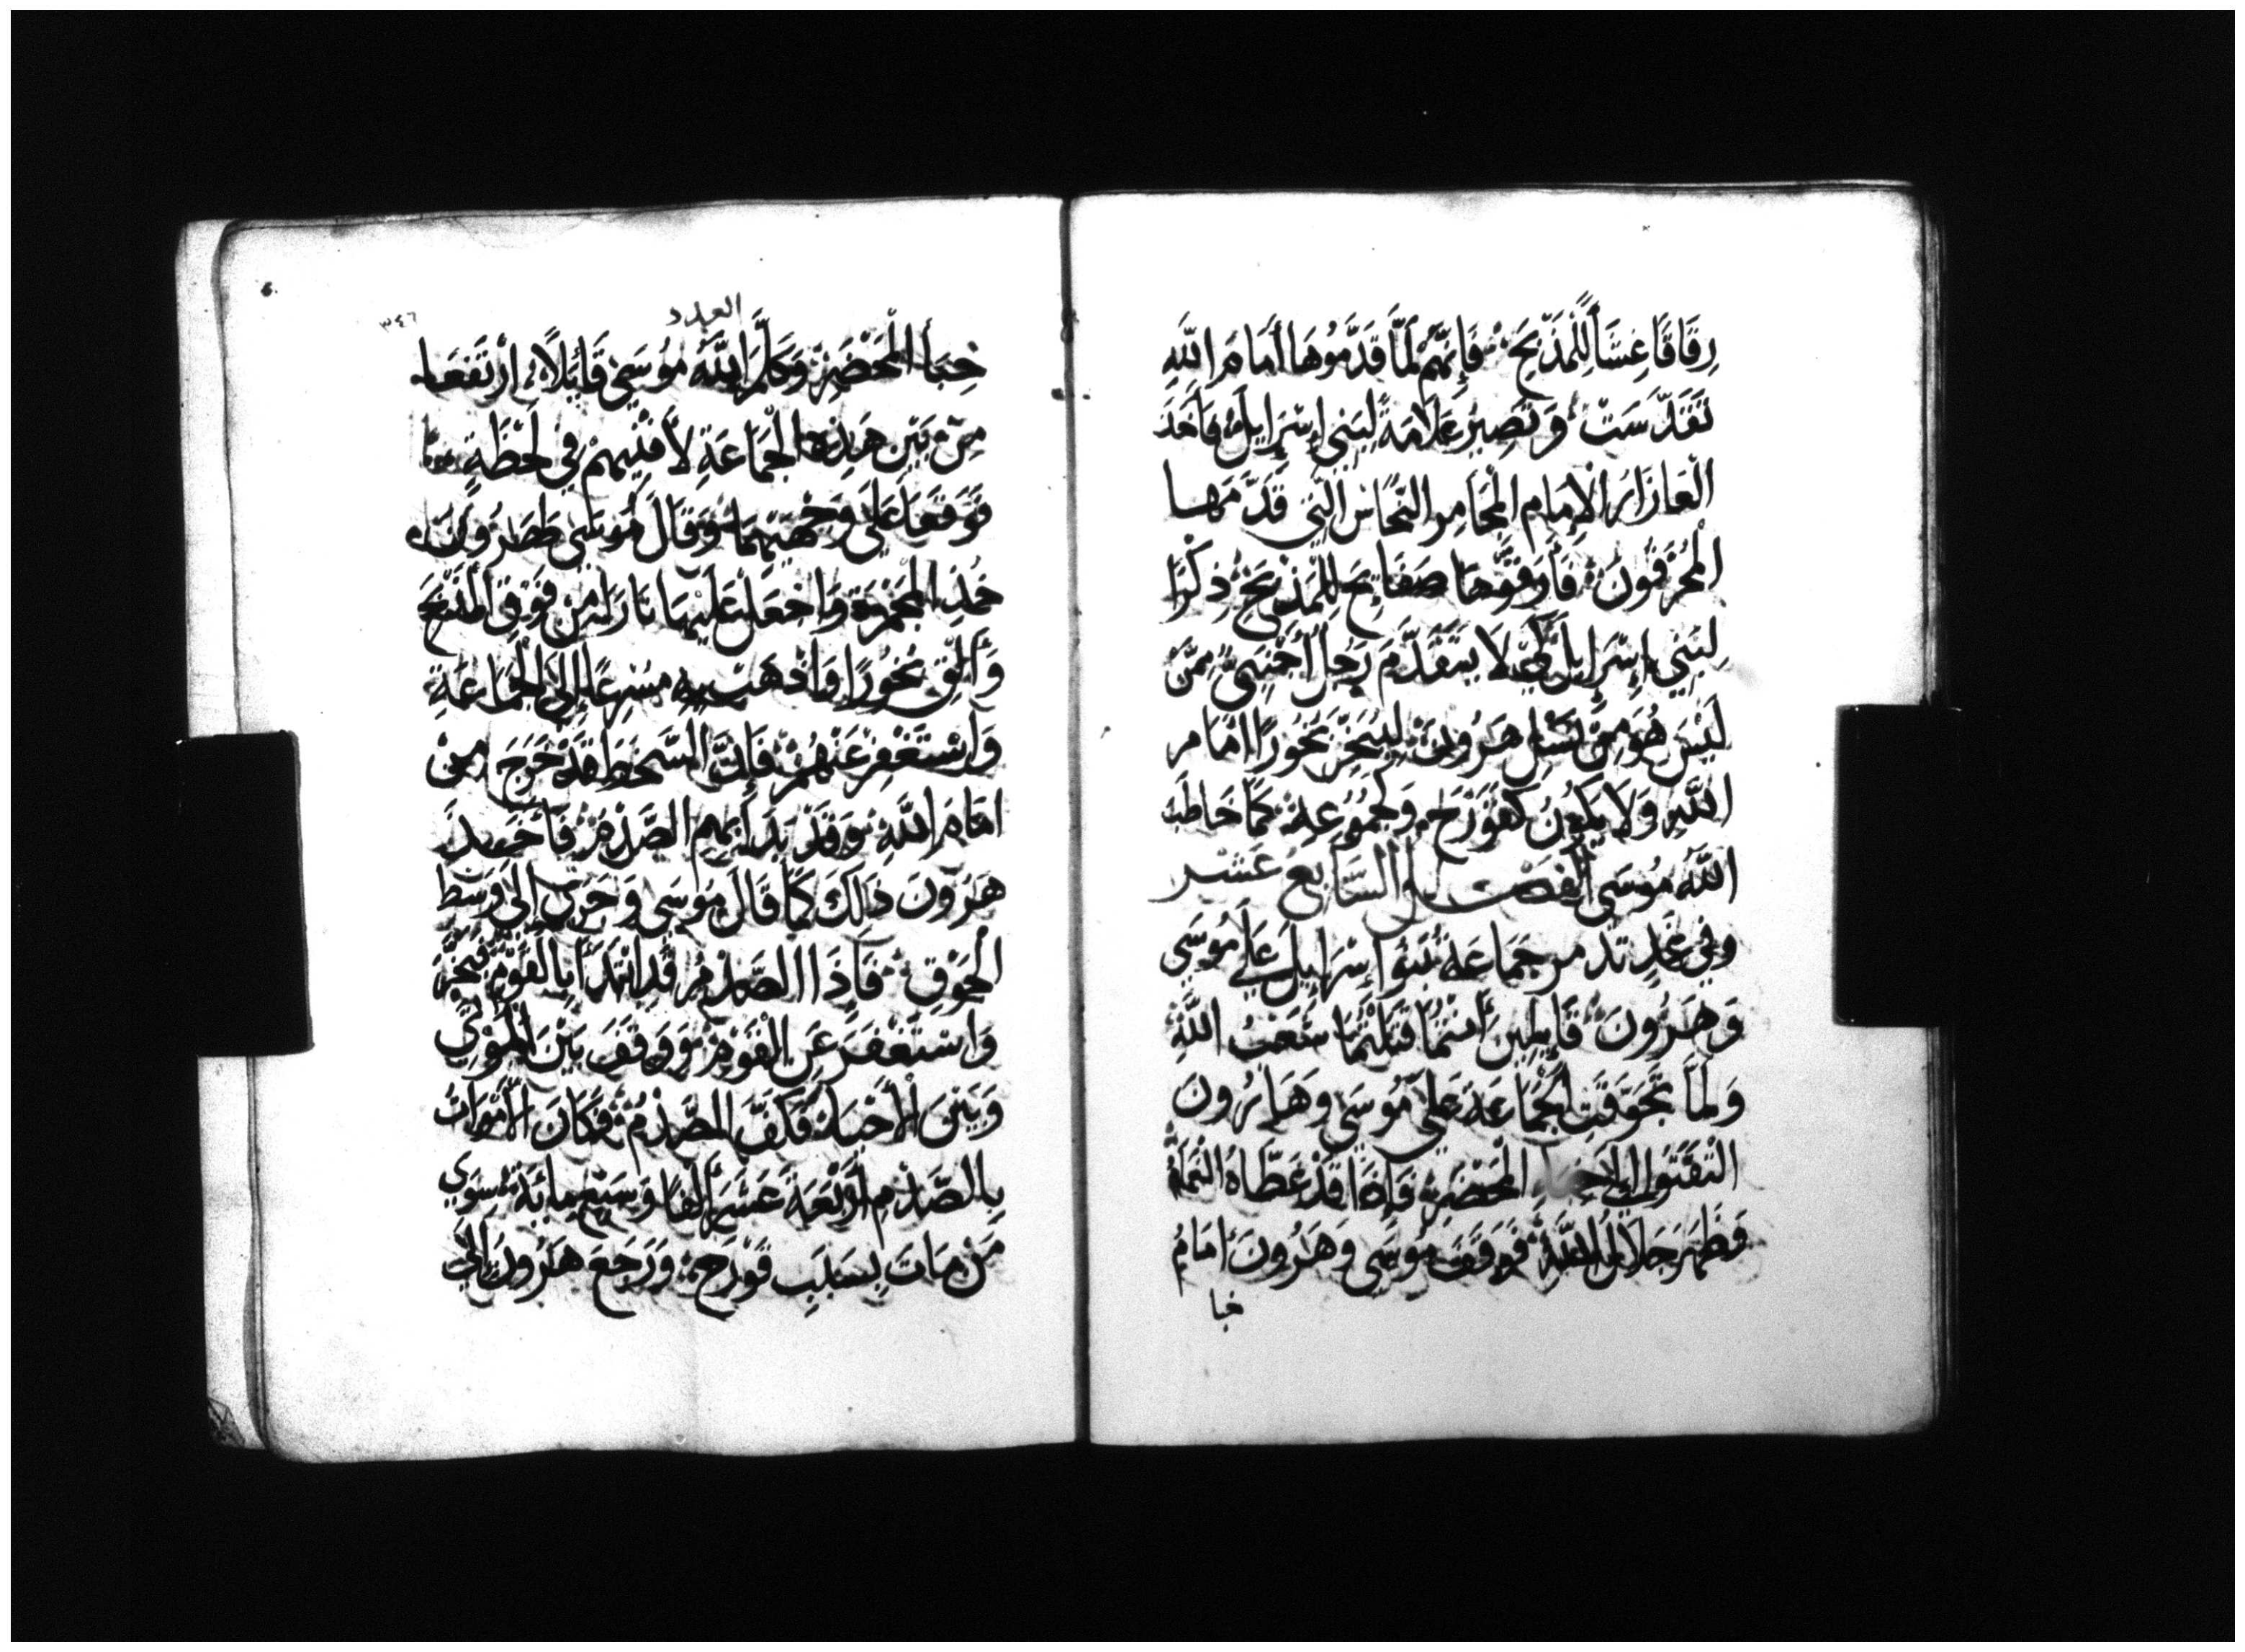 رِقَاقًا غِشَاً لِلْمَذْبَحِ فَإِنَّهُمْ لَمَّا قَدَّمُوهَا أَمَامَ اللَّهِ
تَقَدَّسَتْ وَتَصِيرُ عَلَامَةً لِبَنِي إِسْرَايِلَ فَأَخَذَ
الْعَازَارُ الْإِمَامِ الْمَجَامِر النُّحَاسْ الَّتِي قَدَّمَهَا
الْمُحْرَقُونَ فَأَرَقُّوهَا صَفَايحَ لِلْمَذْبَحِ ذِكْرًا
لِبَنِي إِسْرَايِلَ لِكَي لَا يَتَقَدَّمَ رَجُلٌ أَجْنَبِيٌّ مِمَّنْ
لَيْسَ هُوَ مِنْ نَسْلِ هَرُونَ لِيُبَخِّرَ بَخُورًا امَامَ
اللَّهِ وَلَا يَكُونُ كَقُورَحَ وَجُمُوعِهِ كَمَا خَاطَبَ
اللَّهُ مُوسَى الفصل السَّابِعَ عَشَر
وَفِي غَدٍ تَذَمر جَمَاعَة بَنُوا إِسْرَايِيلَ عَلَي مُوسَي
وَهَرُونَ قَايِلِينَ أَنْتُمَا قَتَلْتُمَا شَعْبَ اللَّهِ
وَلَمَّا تَجَوَّقَتِ الْجَمَاعَة عَلَي مُوسَي وَهَارُونَ
الْتَفَتَوُا إِلَي خِبَاء الْمَحْضَرِ فَإِذَا قَدْ غَطَّاهُ الْغَمَامُ
وَظَهَرَ جَلَالُ اللَّهِ فَوَقَفَ مُوسَي وَهَرُونَ امَامَ
خبا
العدد
٣٤٦
خِبَأ الْمَحْضَرِ وَكَلَّمَ اللَّهُ مُوسَي قَائِلًا ارْتَفَعَا
مِنْ بَيْنِ هَذِهِ الْجَمَاعَةِ لأُفْنِيهِمْ فِي لَحْظَةٍ
فَوَقَعَا عَلَى وَجْهَيْهِمَا وَقَالَ مُوسَي لِهَرُونَ
خُذِ الْمِجْمَرَة وَاجْعَلْ عَلَيْهَا نَارًا مِنْ فَوْقِ الْمَذْبَحِ
وَأَلْقِ بَخُورًا وَاذْهَبْ بِهِ مُسْرِعًا إِلَى الْجَمَاعَةِ
وَاسْتَغْفِرْ عَنْهُمْ فَإِنَّ السَّخَطَ قَدْ خَرَجَ مِنْ
امَامَ اللَّهِ وَقَدْ بَدَأَ بِهِمِ الصَّدْمُ فَأَخَذَ
هَرُونَ ذَلِكَ كَمَا قَالَ مُوسَي وَجَرَى إِلَى وَسَطِ
الْجَوْقِ فَإِذَا الصَّدْمُ قَدِ ابْتَدَأَ بِالْقَوْمِ فَبَخَّرَ
وَاسْتَغْفَرَ عَنِ الْقَوْمِ وَوَقَفَ بَيْنَ الْمَوْتَي
وَبَيْنَ الأَحْيَاء فَكَفَّ الصَّدْمُ فَكَانَ الأَمْوَاتُ
بِالصَّدْمِ أَرْبَعَةَ عَشَرَ أَلْفًا وَسَبْعِ مِائَة سِوَي
مَنْ مَاتَ بِسَبَبِ قُورَحَ وَرَجَعَ هَرُونَ إِلَى